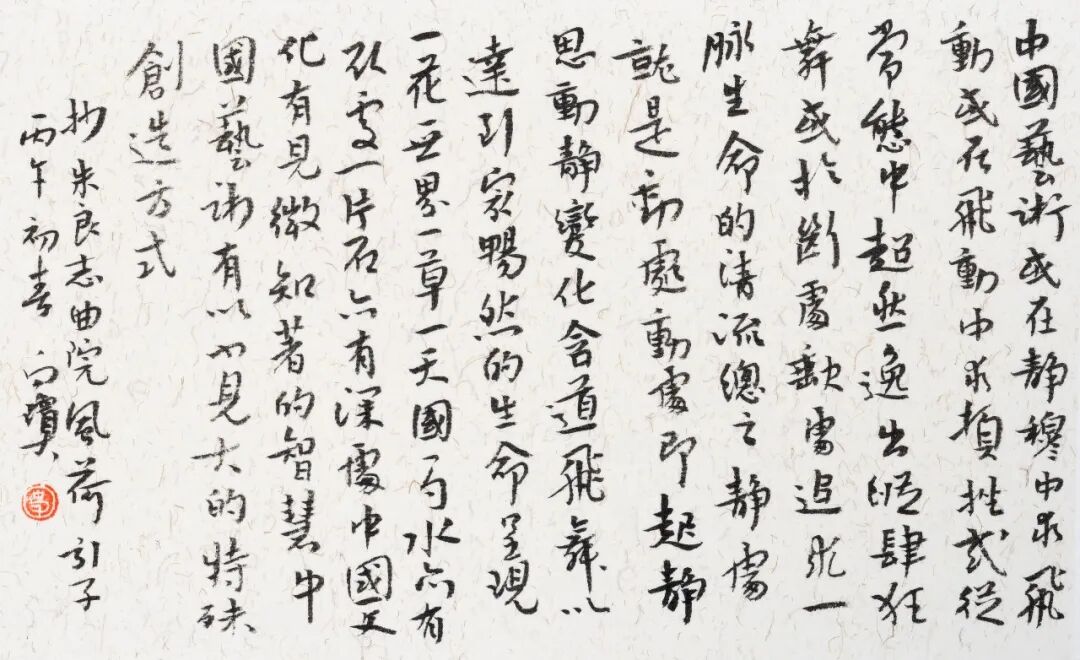 中國藝術或在靜穆中求飛
動或在飛動中求頓挫或從
常態中超然逸出縱肆狂
舞或於斷處缺處追求一
脉生命的清流總之靜處
就是動處動處即起靜
思動靜變化含道飛舞以
達到最暢然的生命呈現
一花一世界一草一天國一勺水亦有
曲處一片石亦有深處中國文
化有見微知著的智慧中
國藝術有以小見大的特殊
創造方式
抄朱良志曲院風荷引子
丙午初春